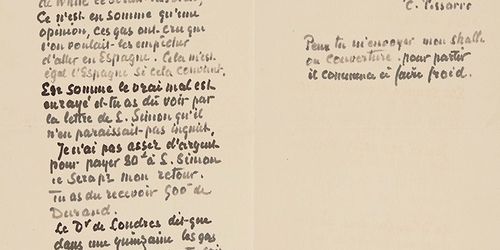 Ce n'est en somme qu'une
opinion, ces gas ont cru que
l'on voulait les empêcher
d'aller en Espagne. Cela m'est
égal l'Espagne si cela convient.
En somme le vrai mal est
enrayé et tu as dû voir par
la lettre de L. Simon qu'il
n'en paraissait pas inquiet.
Je n'ai pas assez d'argent
pour payer 80 à L. Simon
ce sera pr mon retour.
Tu as du recevoir 900 de
Durand.
Le Dr de Londres dit que
dans une quinzaine les gas
C. Pissarro
Peux tu m'envoyer mon shall
ou couverture pour partir
il commence à faire froid.